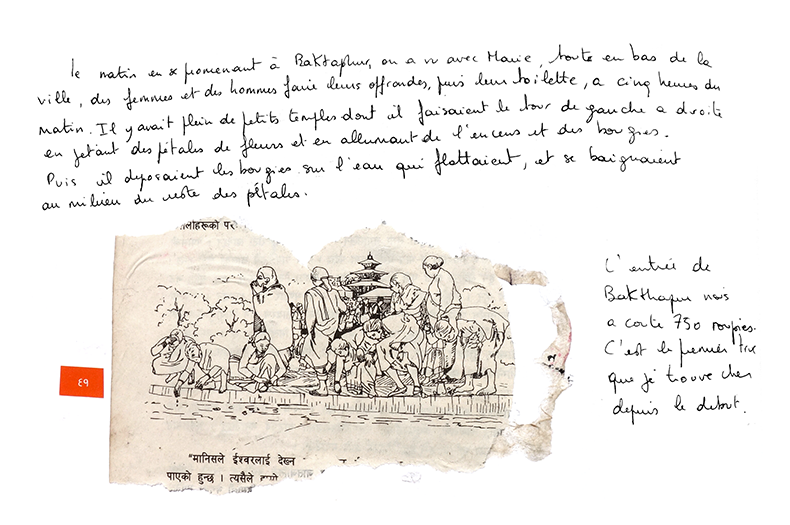 le matin en se promenant à Baktaphur, on a vu avec Marie, toute en bas de la
ville, des femmes et des hommes faire leurs offrandes, puis leur toilette, a cinq heures du
matin. Il y avait plein de petits temples dont il faisaient le tour de gauche a droite
en jetant des pétales de fleurs et en allumant de l'encens et des bougies.
Puis il deposaient les bougies sur l'eau qui flottaient, et se baignaient
au milieu du reste des pétales.
L'entrée de
Bakthapur nous
a couté 750 roupies.
C'est le premier truc
que je trouve cher
depuis le debut.
लीहरूको पर
६१
"मानिसले ईश्वरलाई देख्न
पाएको हुन्छ । त्यसैले